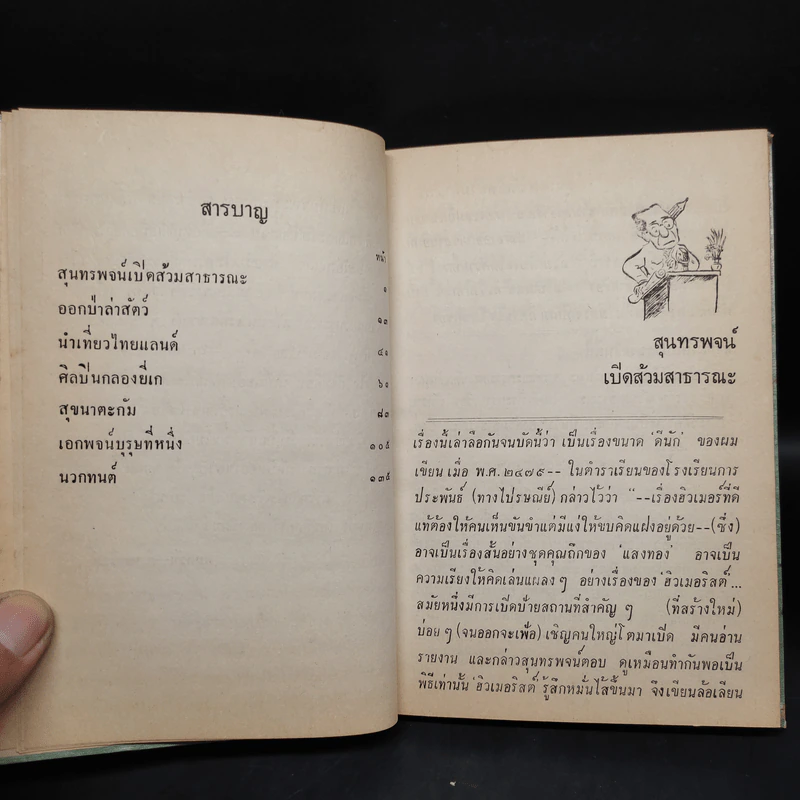 สารบาญ
หน้า
สุนทรพจน์เปิดส้วมสาธารณะ ๑
ออกป่าล่าสัตว์ ๑๓
นำเที่ยวไทยแลนด์ ๔๑
ศิลปินกลองยี่เก ๖๑
สุขนาตะกัม ๘๓
เอกพจน์บุรุษที่หนึ่ง ๑๐๕
นวกทนต์ ๑๓๕
สุนทรพจน์
เปิดส้วมสาธารณะ
เรื่องนี้เล่าลือกันจนบัดนี้ว่า เป็นเรื่องขนาด 'ดีนัก' ของผม
เขียน เมื่อ พ.ศ. ๒๔๗๕-- ในตำราเรียนของโรงเรียนการ
ประพันธ์ (ทางไปรษณีย์) กล่าวไว้ว่า "--เรื่องฮิวเมอร์ที่ดี
แท้ต้องให้คนเห็นขันขำแต่มีแง่ให้ขบคิดแฝงอยู่ด้วย--(ซึ่ง)
อาจเป็นเรื่องสั้นอย่างชุดคุณถึกของ 'แสงทอง' อาจเป็น
ความเรียงให้คิดเล่นแผลงๆ อย่างเรื่องของ 'ฮิวเมอริสต์'...
สมัยหนึ่งมีการเปิดป้ายสถานที่สำคัญๆ (ที่สร้างใหม่)
บ่อยๆ (จนออกจะเฟ้อ) เชิญคนใหญ่โตมาเปิด มีคนอ่าน
รายงาน และกล่าวสุนทรพจน์ตอบ ดูเหมือนทำกันพอเป็น
พิธีเท่านั้น 'ฮิวเมอริสต์' รู้สึกหมั่นไส้ขึ้นมา จึงเขียนล้อเลียน